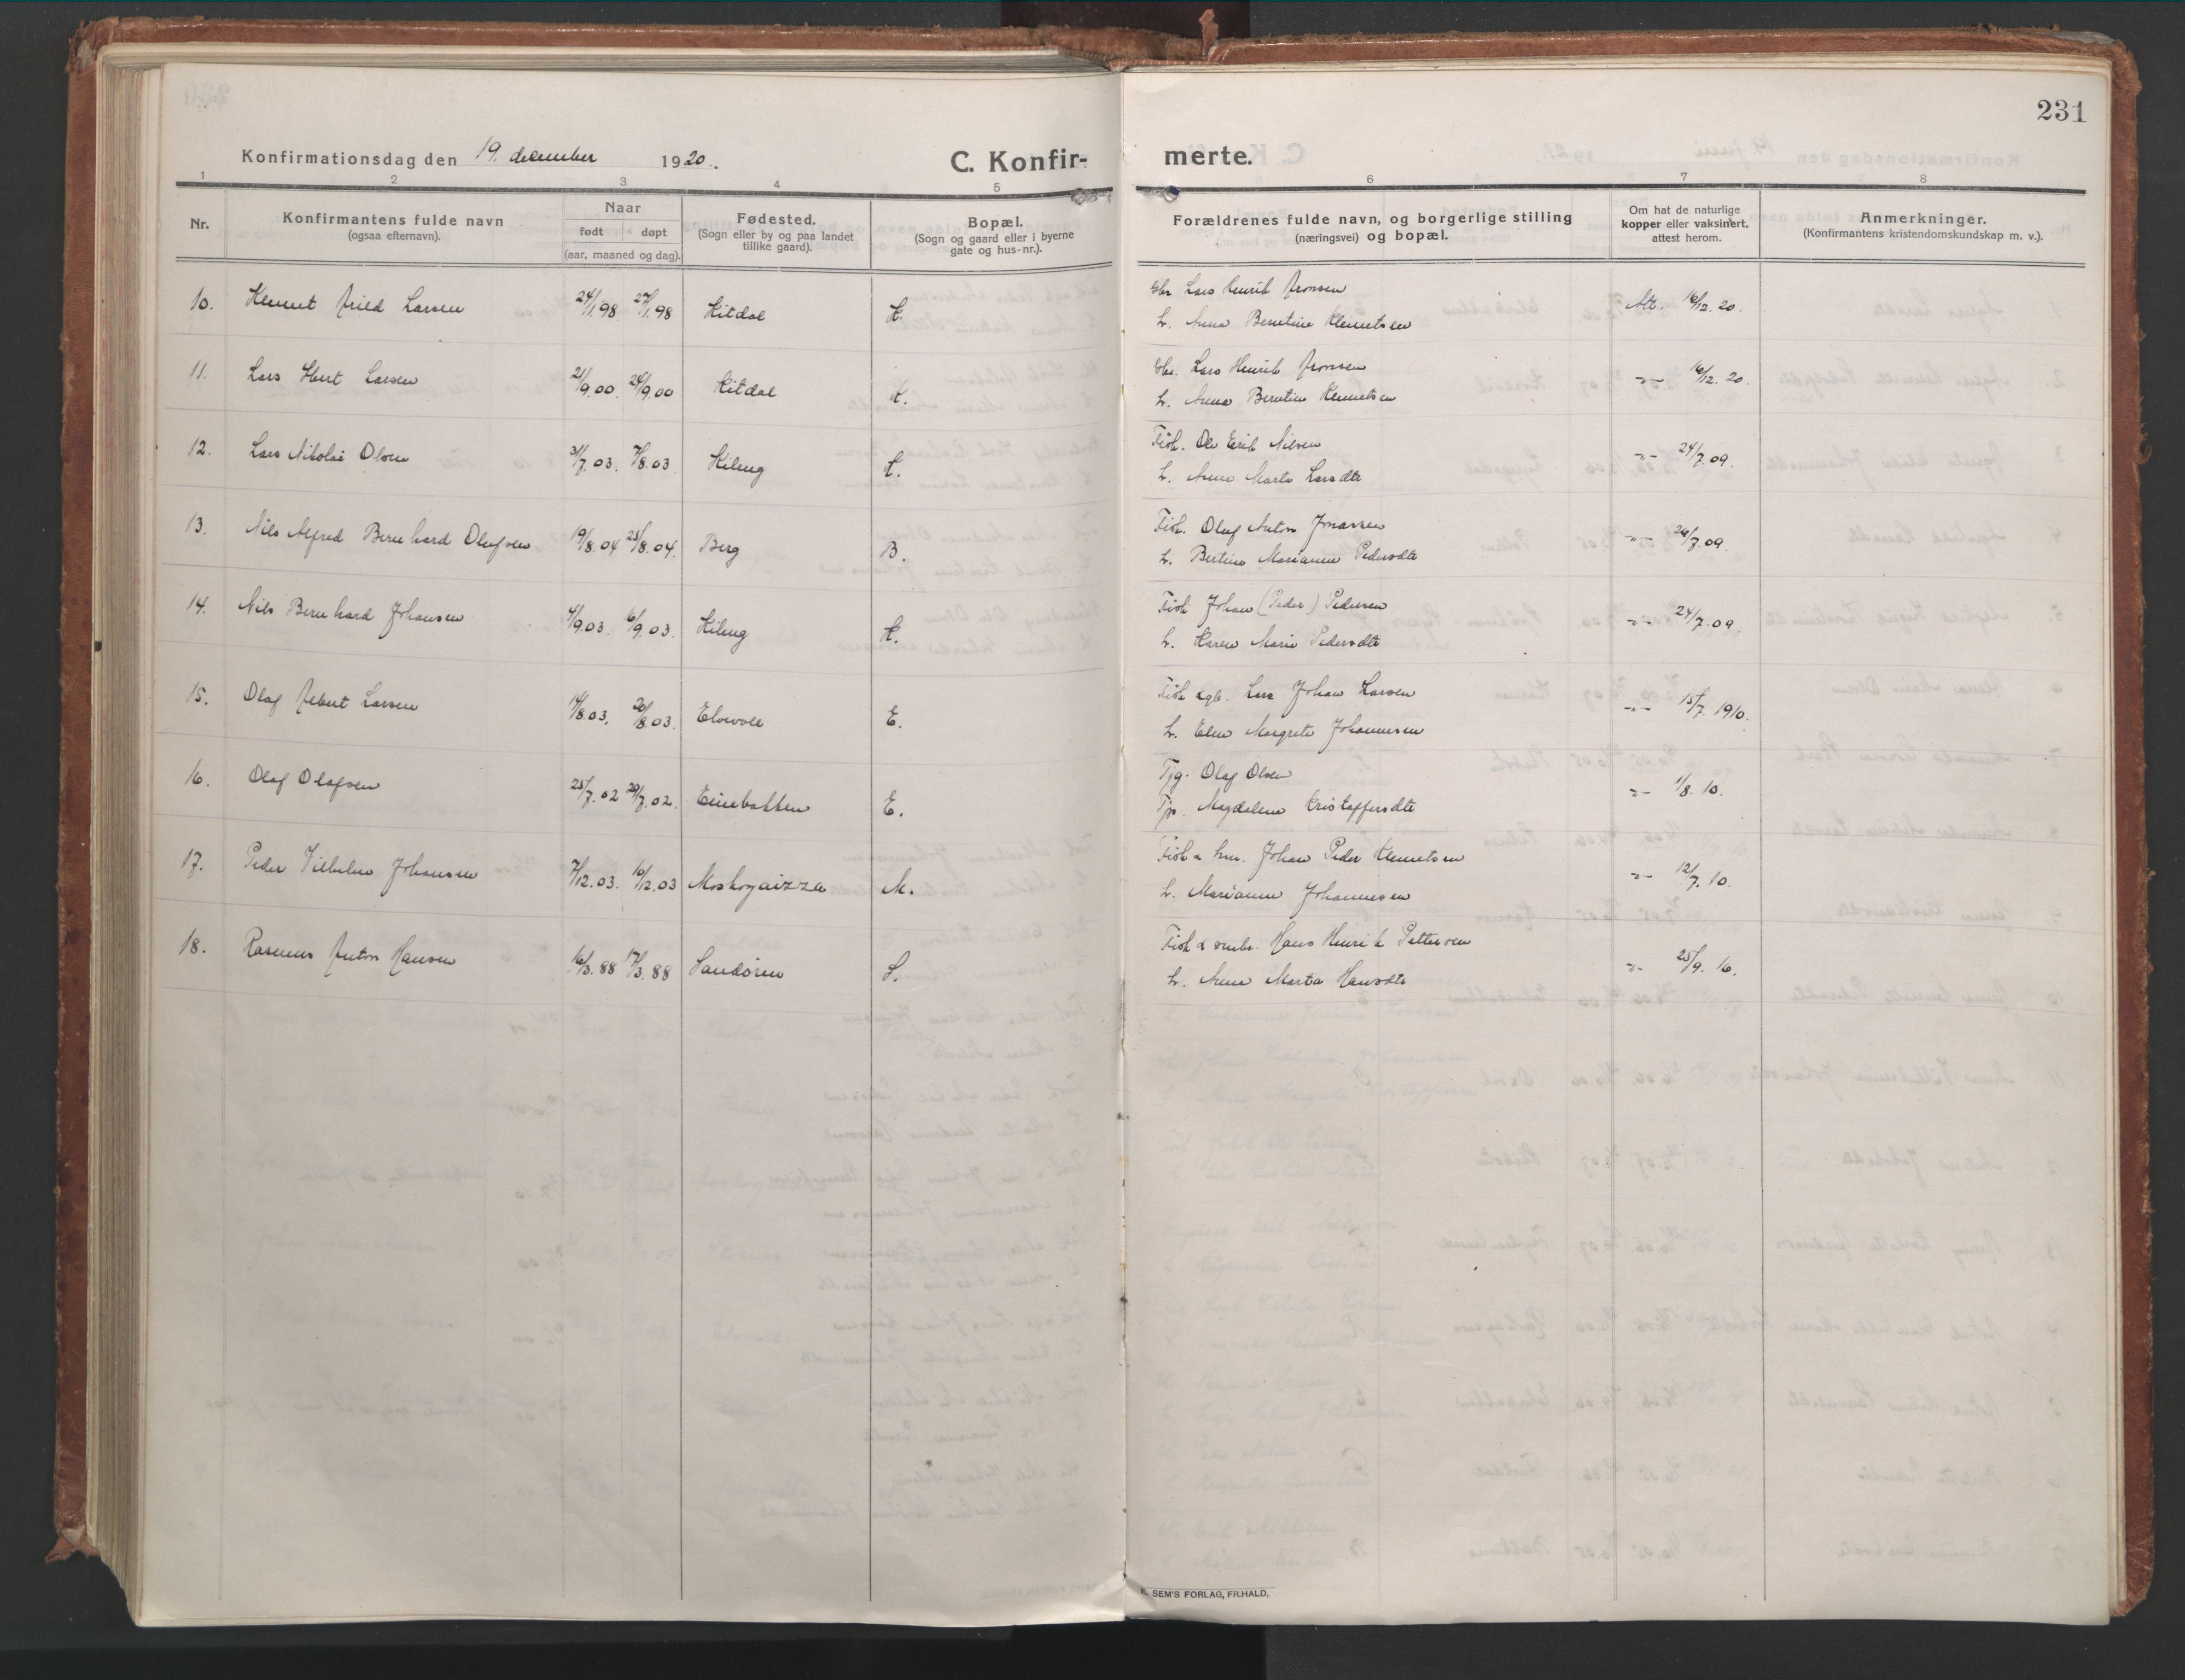 231
Konfirmationsdag den 19. december 1920. C. Konfir- merte.
1 2 3 4 5 6 7 8
Nr.
Konfirmantens fulde navn
(ogsaa efternavn).
Naar
født døpt
(aar, maaned og dag).
Fødested.
(Sogn eller by og paa landet
tillike gaard).
Bopæl.
(Sogn og gaard eller i byerne
gate og hus-nr.).
Forældrenes fulde navn, og borgerlige stilling
(næringsvei) og bopæl.
Om hat de naturlige
kopper eller vaksinert,
attest herom.
Anmerkninger.
(Konfirmantens kristendomskundskap m. v.).
Gbr Lars Henrik Aronsen
10. Klemet Arild Larsen 24/1.98 27/1.98 Kitdal K. Att. 16/12. 20.
h. Anna Berntine Klemetsen
Gbr. Lars Henrik Aronsen
11. Lars Larsen 21/9.00. 24/9.00 Kitdal K. -"- 16/12. 20.
h. Anna Berntine Klemetsen
Fisk. Ole Erik Nilsen
12. Lars Nikolai Olsen 31/7.03. 7/8.03 Kileng K. -"- 24/7.09.
h. Anna Marta Larsdtr
Fisk. Oluf Anton Jonassen
13. Nils Alfred Bernhard Olufsen 19/8.04 28/8.04. Berg B. -"- 24/7.09.
h. Bertine Marianne Pedersdtr
Fisk Johan (Peder) Pedersen
14. Nils Bernhard Johansen 4/9.03. 6/9.03. Kileng K. -"- 24/7.09.
h. Karen Marie Pedersdtr
Fisk & gb. Lars Johan Larsen
15. Olaf Albert Larsen 14/8.03. 20/8.03. Elvevold E. -"- 15/7. 1910.
h. Elen Margrete Johannesen
Tjg. Olaf Olsen
16. Olaf Olafsen 25/7.02 29/7.02. Einebakken E. -"- 1/8. 10.
Tjp. Magdalena Kristoffersdtr
Fisk & hm. Johan Peder Klemetsen
17. Peder Vilhelm Johansen 7/12.03. 10/12.03 Moskogaizza M. -"- 12/7. 10.
h. Marianne Johannesen
Fisk & smbr. Hans Henrik Pettersen
18. Rasmus Anton Hansen 16/3.88 17/3.88 Sandøren S. -"- 25/9. 16.
h. Anna Marta Hansdtr
E. SEM'S FORLAG, FR.HALD.